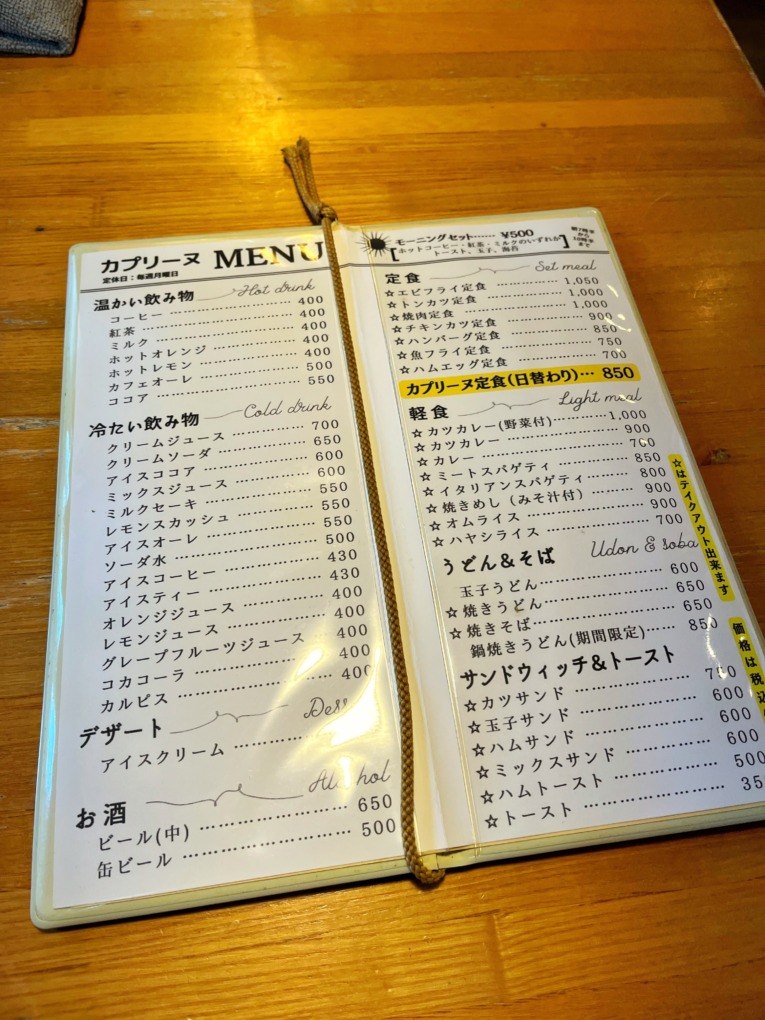 カプリーヌ MENU
定休日：毎週月曜日
温かい飲み物 Hot drink
コーヒー 400
紅茶 400
ミルク 400
ホットオレンジ 400
ホットレモン 400
カフェオーレ 500
ココア 550
冷たい飲み物 Cold drink
クリームジュース 700
クリームソーダ 650
アイスココア 600
ミックスジュース 600
ミルクセーキ 550
レモンスカッシュ 550
アイスオーレ 550
ソーダ水 500
アイスコーヒー 430
アイスティー 430
オレンジジュース 400
レモンジュース 400
グレープフルーツジュース 400
コカコーラ 400
カルピス 400
デザート
アイスクリーム
お酒 Alcohol
ビール(中) 650
缶ビール 500
モーニングセット…… ¥500
[ホットコーヒー・紅茶・ミルクのいずれか
トースト、玉子、海苔]
朝7時半
から
10時半
まで
定食 Set meal
☆エビフライ定食 1,050
☆トンカツ定食 1,000
☆焼肉定食 1,000
☆チキンカツ定食 900
☆ハンバーグ定食 850
☆魚フライ定食 750
☆ハムエッグ定食 700
カプリーヌ定食(日替わり)… 850
軽食 Light meal
☆カツカレー(野菜付) 1,000
☆カツカレー 900
☆カレー 700
☆ミートスパゲティ 850
☆イタリアンスパゲティ 800
☆焼きめし（みそ汁付） 900
☆オムライス 900
☆ハヤシライス 700
うどん&そば Udon & soba
玉子うどん 600
☆焼きうどん 650
☆焼きそば 650
鍋焼きうどん(期間限定) 850
サンドウィッチ&トースト
☆カツサンド 750
☆玉子サンド 600
☆ハムサンド 600
☆ミックスサンド 600
☆ハムトースト 500
☆トースト 35
☆はテイクアウト出来ます
価格は税込